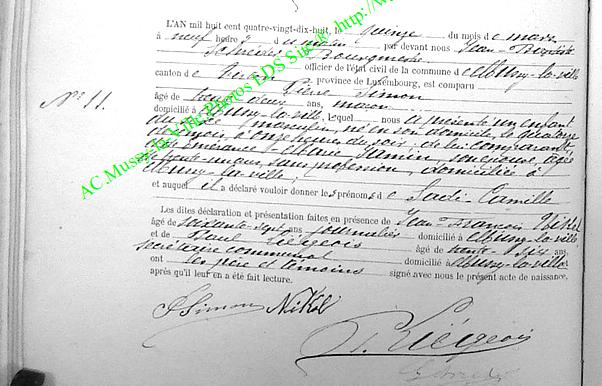 L'AN mil huit cent quatre-vingt-dix-huit, le quinze du mois de mars
à neuf heures du matin par devant nous Jean-Baptiste
Bourgmestre
officier de l'état civil de la commune de Mussy-la-ville
canton de Virton, province de Luxembourg, est comparu
Pierre Simon
N° 11.
âgé de trente deux ans, maçon
domicilié à Mussy-la-ville, lequel nous a présenté un enfant
du sexe masculin, né en son domicile, le quatorze
de ce mois, à onze heures du soir; de lui comparant,
et de Émérance-Marie son épouse, âgée
de trente-un ans, sans profession, domiciliée à
Mussy-la-ville;
et auquel il a déclaré vouloir donner les prénoms de Sadi-Camille
Les dites déclaration et présentation faites en présence de Jean-François Nikel
âgé de soixante-sept ans journalier domicilié à Mussy-la-ville
et de Paul Liégeois âgé de trente-six ans
secrétaire communal domicilié à Mussy-la-ville
ont les père et témoins signé avec nous le présent acte de naissance,
après qu'il leur en a été fait lecture.
P Simon Nikel
P. Liégeois
AC.Mussy-la-Ville Photos LDS Site © http://www